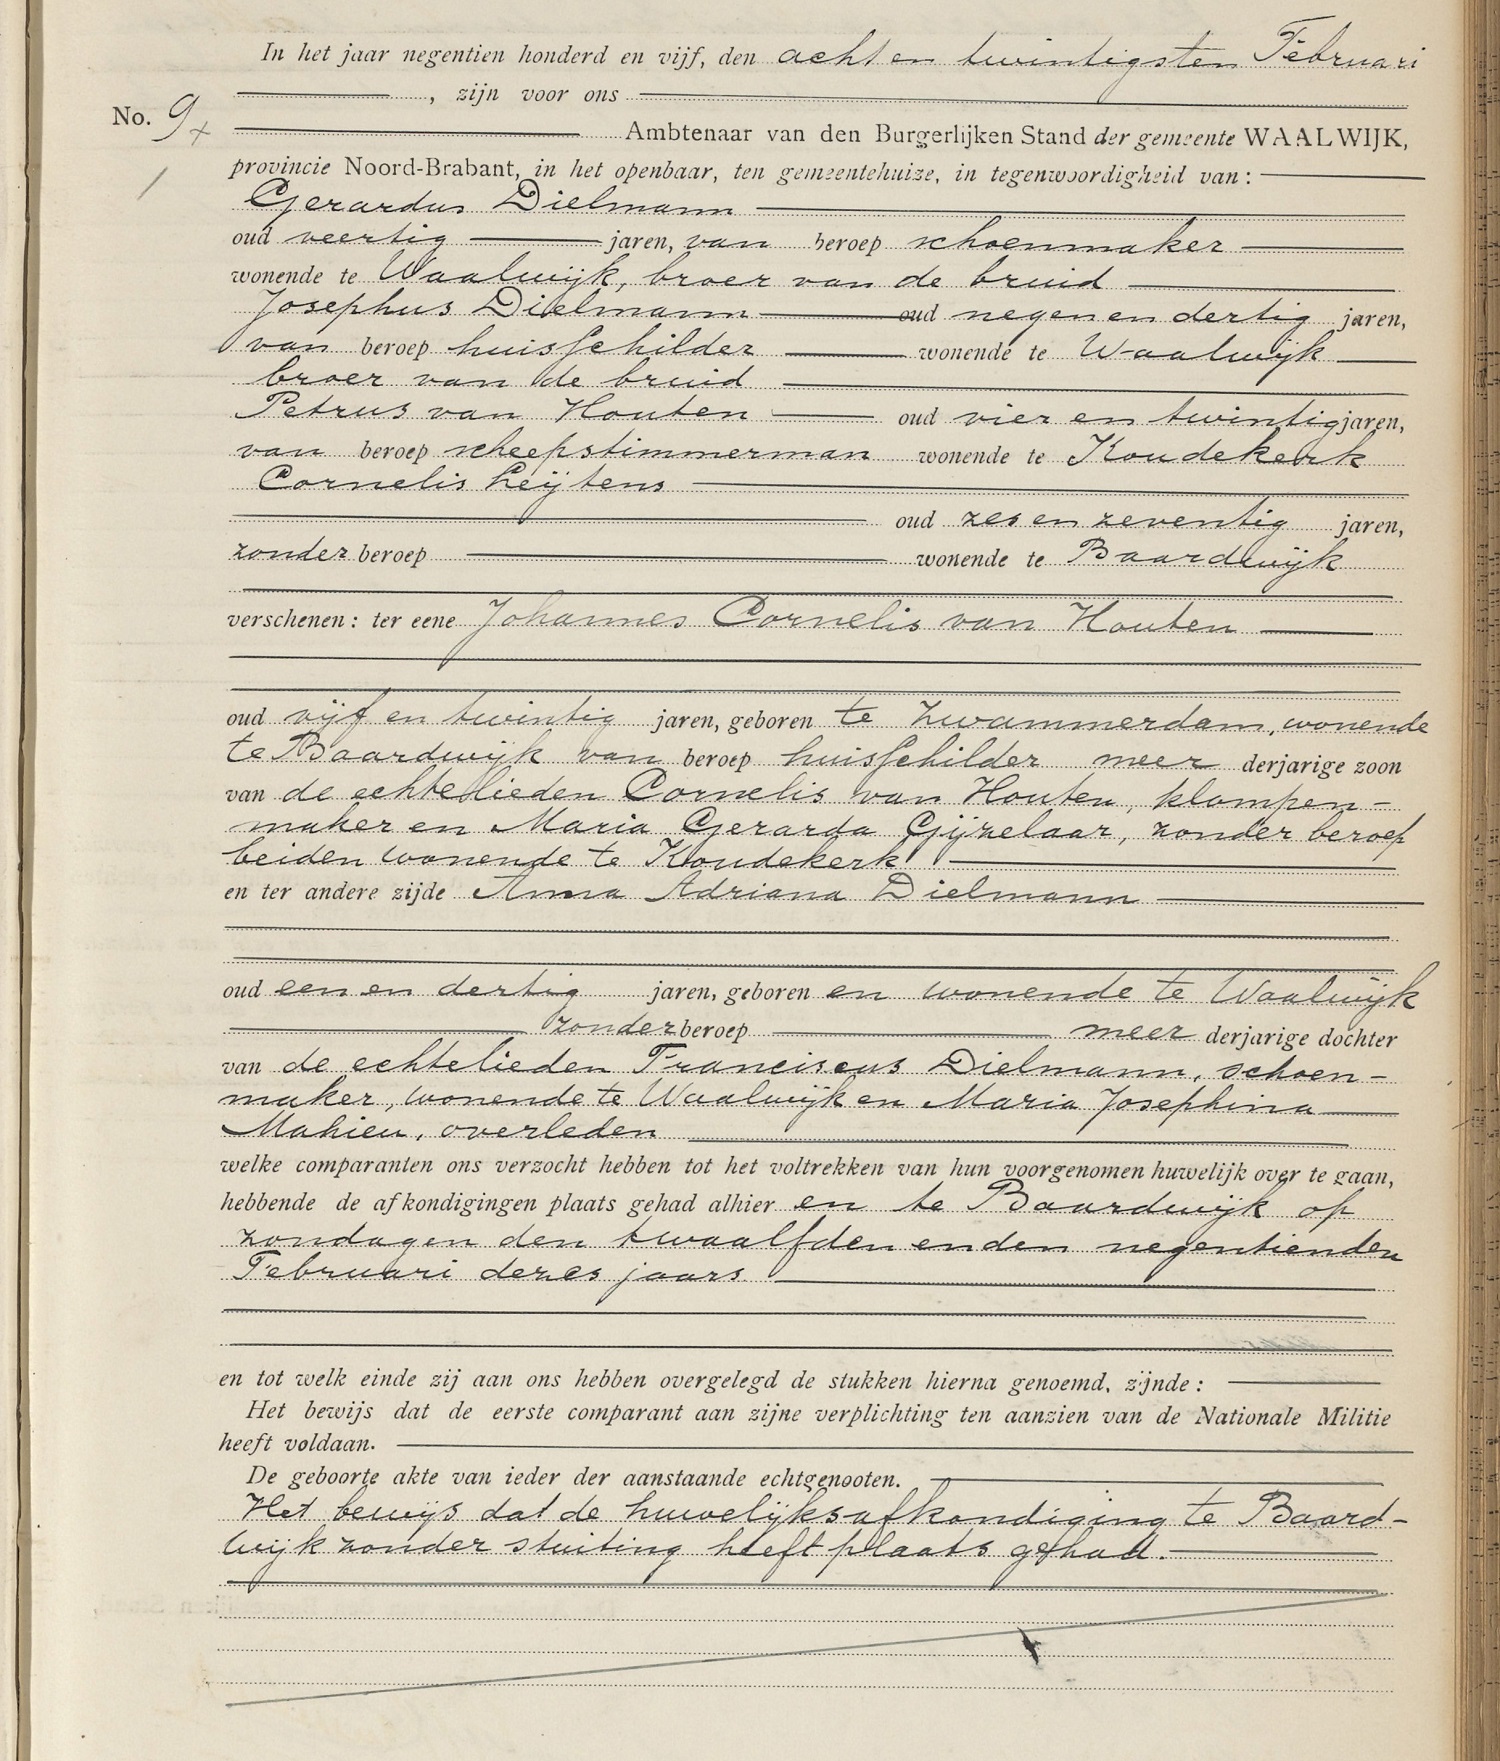 In het jaar negentien honderd en vijf, den acht en twintigsten Februari
, zijn voor ons
No. 9
Ambtenaar van den Burgerlijken Stand der gemeente WAALWIJK,
provincie Noord-Brabant, in het openbaar, ten gemeentehuize, in tegenwoordigheid van:
Gerardus Dielmann
oud veertig jaren, van beroep schoenmaker
wonende te Waalwijk, broer van de bruid
Josephus Dielmann oud negen en dertig jaren,
van beroep huisschilder wonende te Waalwijk
broer van de bruid
Petrus van Houten oud vier en twintig jaren,
van beroep scheepstimmerman wonende te Koudekerk
Cornelis Leijtens
oud zes en zeventig jaren,
zonder beroep wonende te Baardwijk
verschenen: ter eene Johannes Cornelis van Houten
oud vijf en twintig jaren, geboren te Zwammerdam, wonende
te Baardwijk van beroep huisschilder meer derjarige zoon
van de echtelieden Cornelis van Houten, klompen-
maker en Maria Gerarda Gijzelaar, zonder beroep
beiden wonende te Koudekerk
en ter andere zijde Anna Adriana Dielmann
oud een en dertig jaren, geboren en wonende te Waalwijk
zonder beroep meer derjarige dochter
van de echtelieden Franciscus Dielmann, schoen-
maker, wonende te Waalwijk en Maria Josephina
Mahieu, overleden
welke comparanten ons verzocht hebben tot het voltrekken van hun voorgenomen huwelijk over te gaan,
hebbende de afkondigingen plaats gehad alhier en te Baardwijk op
zondagen den twaalfden en den negentienden
Februari dezes jaars
en tot welk einde zij aan ons hebben overgelegd de stukken hierna genoemd, zijnde:
Het bewijs dat de eerste comparant aan zijne verplichting ten aanzien van de Nationale Militie
heeft voldaan.
De geboorte akte van ieder der aanstaande echtgenooten.
Het bewijs dat de huwelijksafkondiging te Baard-
wijk zonder stuiting heeft plaats gehad.